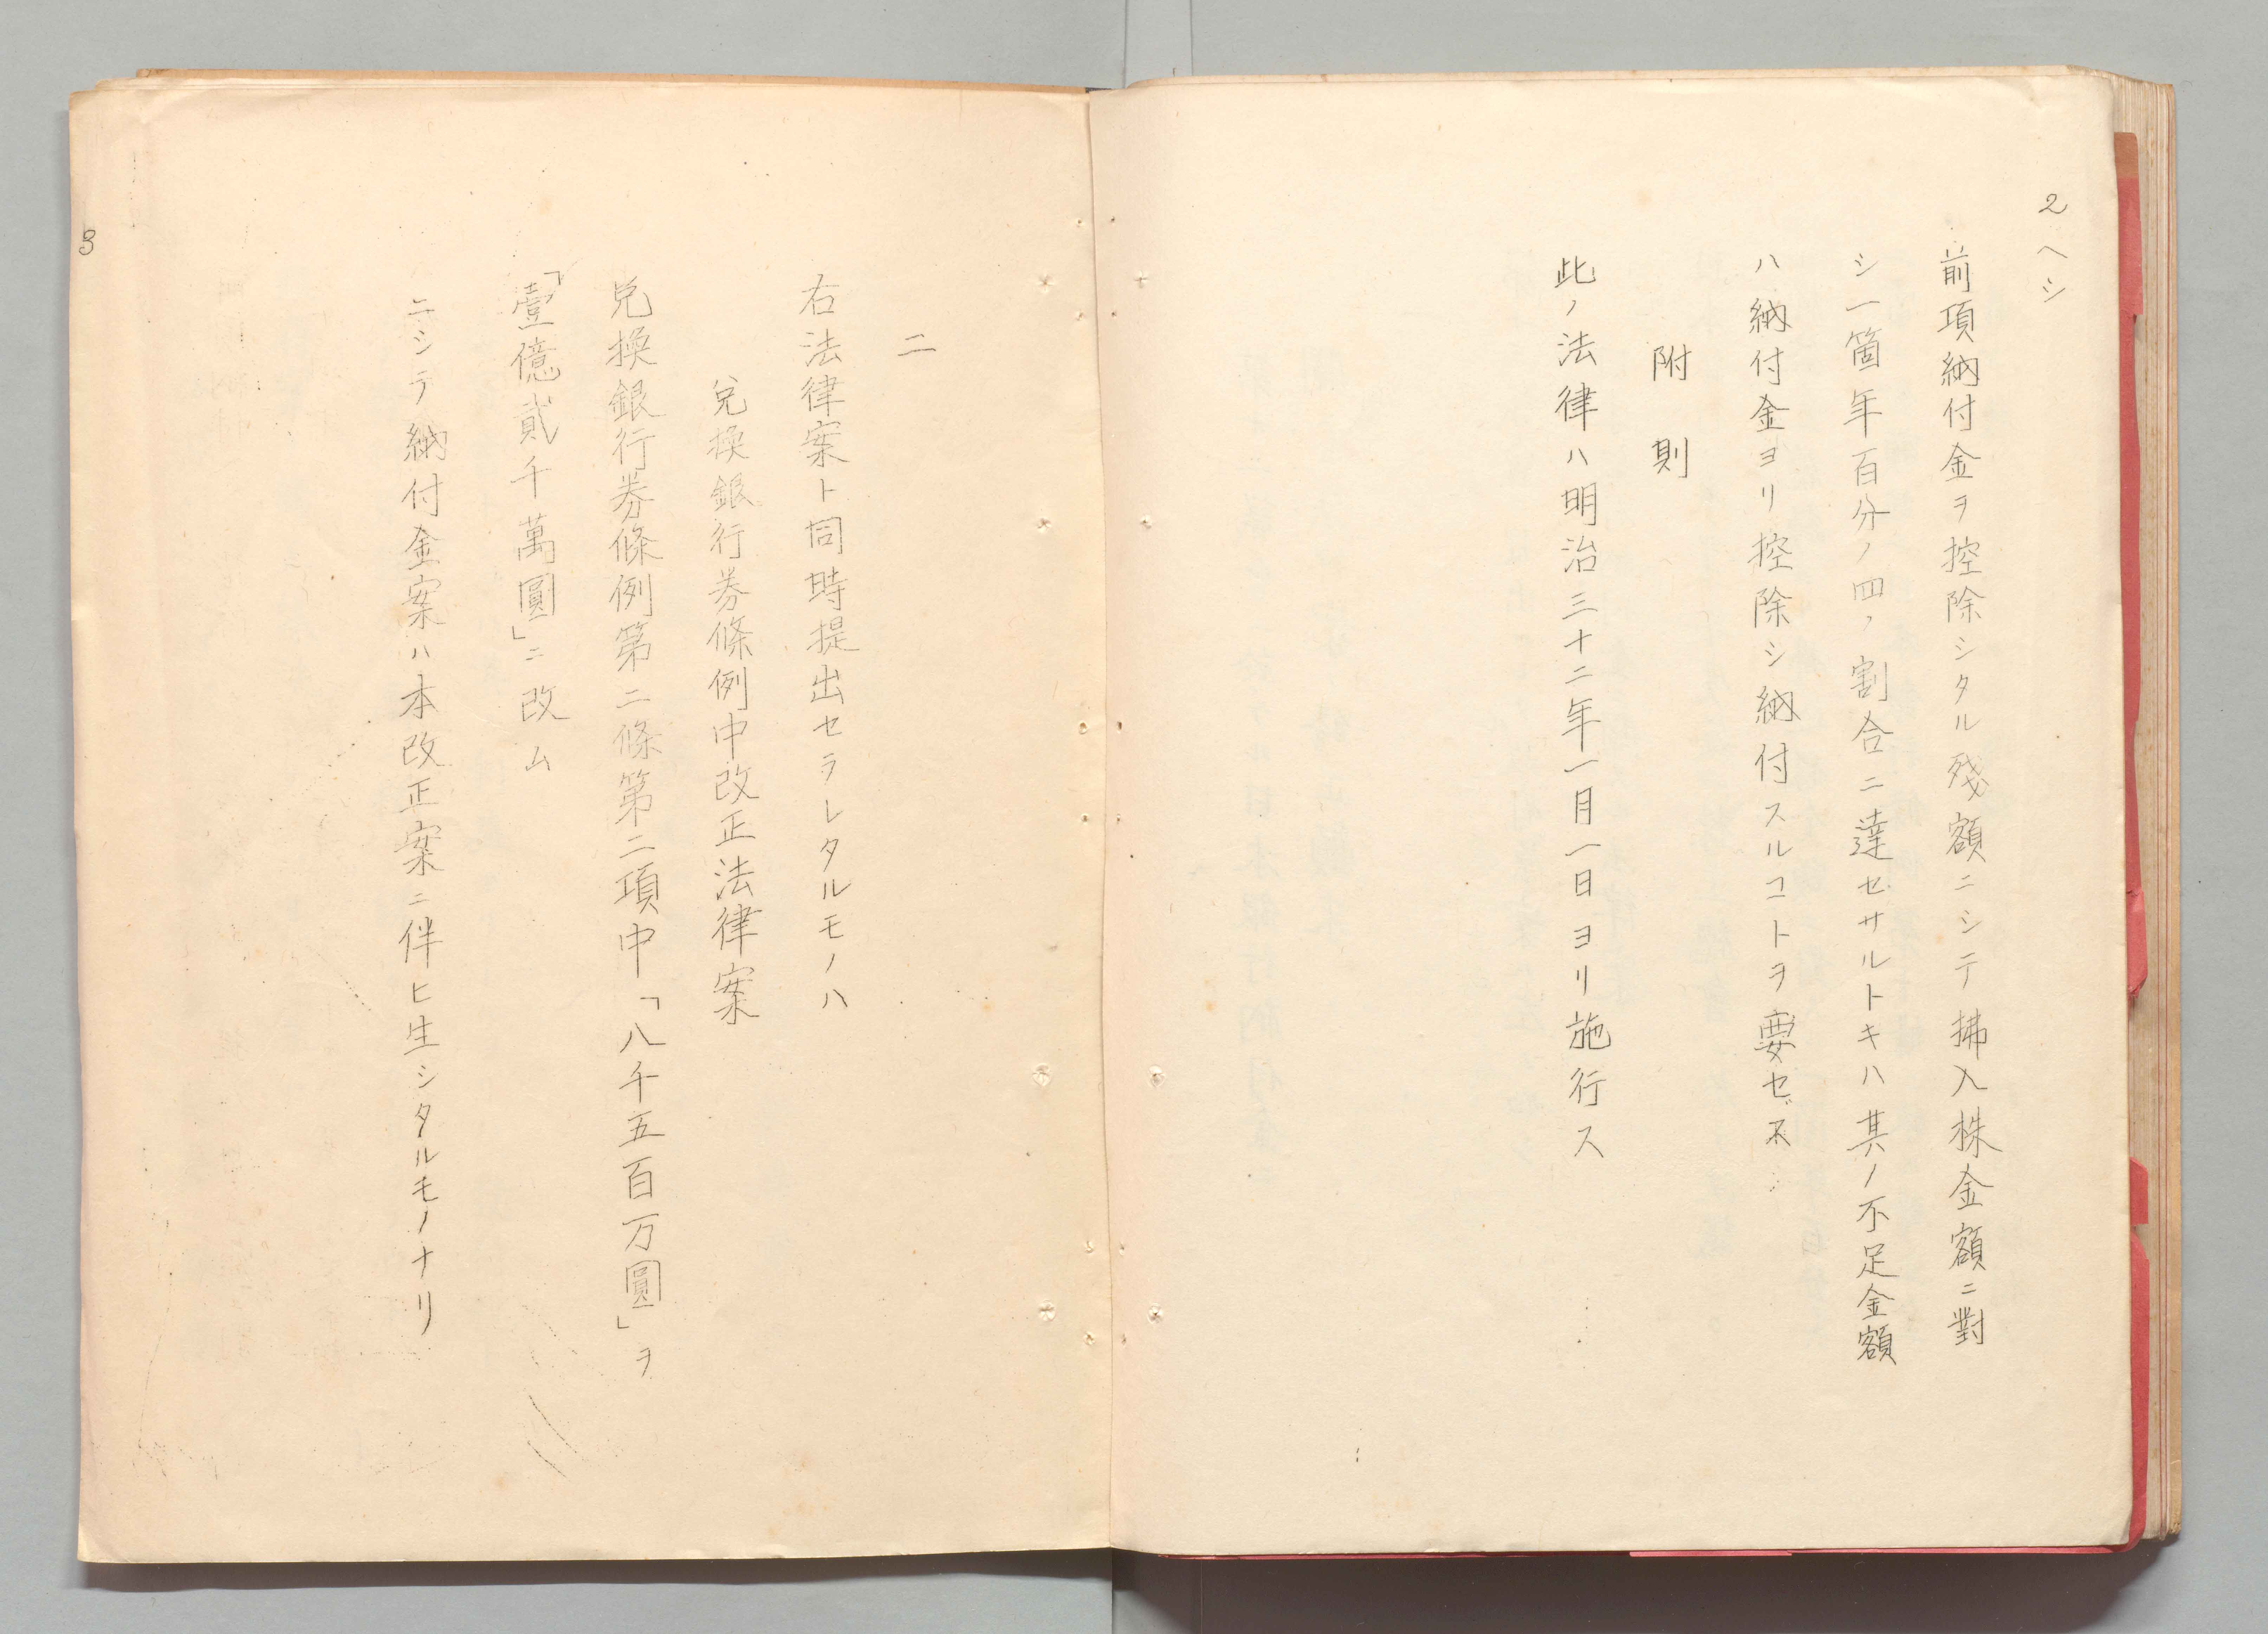 2
ヘシ
前項納付金ヲ控除シタル殘額ニシテ拂入株金額ニ對
シ一箇年百分ノ四ノ割合ニ達セサルトキハ其ノ不足金額
ハ納付金ヨリ控除シ納付スルコトヲ要セズ
附則
此ノ法律ハ明治三十二年一月一日ヨリ施行ス
二
右法律案ト同時提出セラレタルモノハ
兌換銀行券條例中改正法律案
兌換銀行券條例第二條第二項中「八千五百万圓」ヲ
「壹億貳千萬圓」ニ改ム
ニシテ納付金案ハ本改正案ニ伴ヒ生シタルモノナリ
3